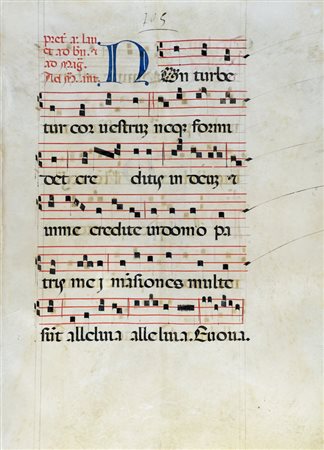 105
et ad
ad Mag.
Non turbe
tur cor uestrum neqz formi
det cre ditis in deum &
in me credite in domo pa
tris mei mansiones multe
sunt alleluia alleluia. Euoua.